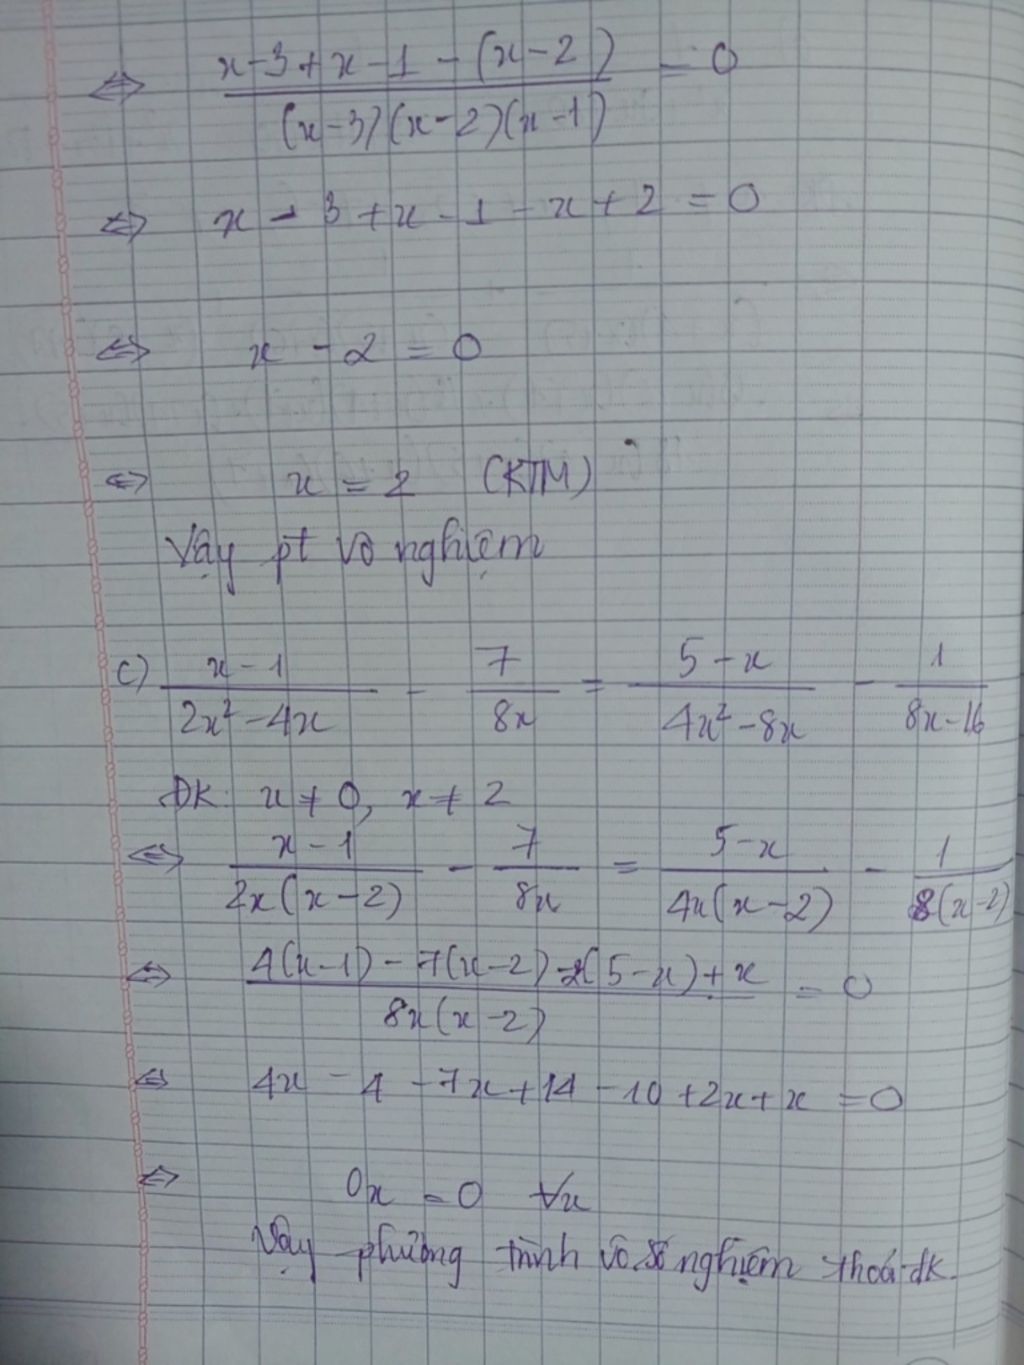 ⇔ (x-3+x-1-(x-2))/((x-3)(x-2)(x-1)) = 0
⇔ x-3+x-1-x+2=0
⇔ x-2=0
⇔ x=2 (KTM)
Vậy pt vô nghiệm
c) (x-1)/(2x²-4x) - 7/(8x) = (5-x)/(4x²-8x) - 1/(8x-16)
ĐK: x≠0, x≠2
⇔ (x-1)/(2x(x-2)) - 7/(8x) = (5-x)/(4x(x-2)) - 1/(8(x-2))
⇔ (4(x-1)-7(x-2)-2(5-x)+x)/(8x(x-2)) = 0
⇔ 4x-4-7x+14-10+2x+x=0
⇔ 0x=0 ∀x
Vậy phương trình vô số nghiệm thoả đk.